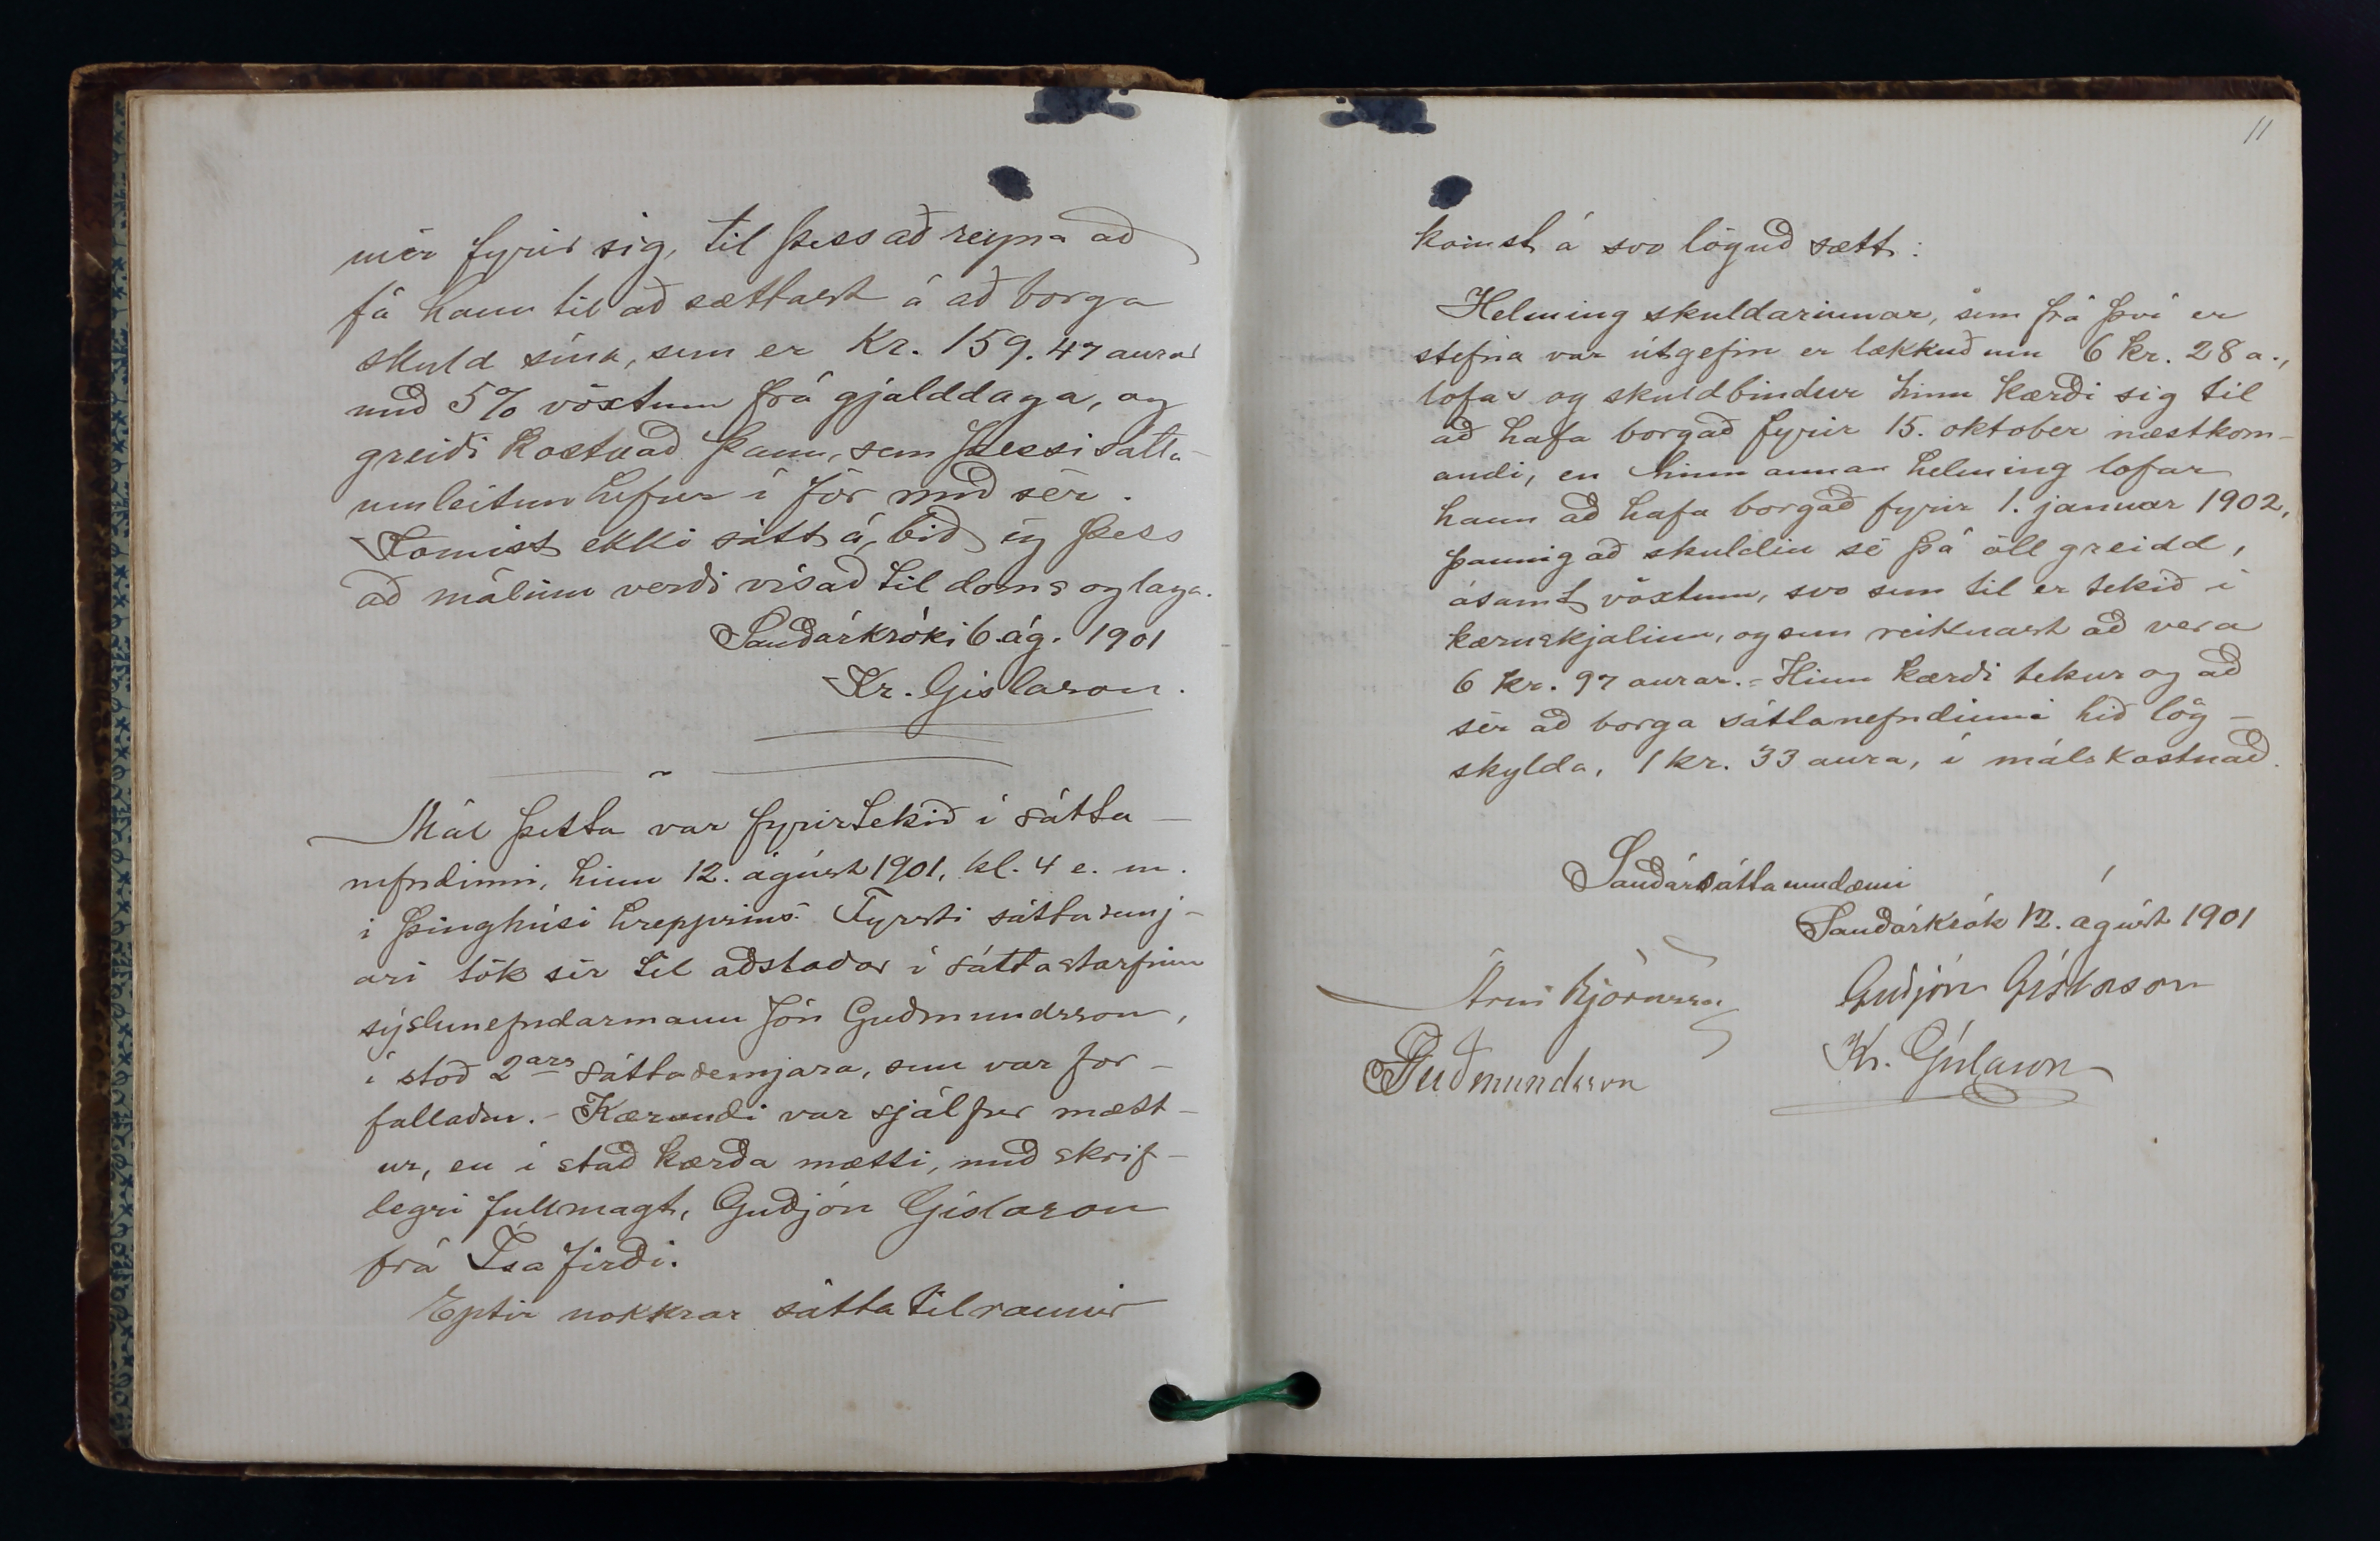 mér fyrir sig, til þess að reyna að
fá hann til að sættast á að borga
skuld sína, sem er Kr. 159.47 aurar
með 5% vöxtum frá gjalddaga, og
greiði kostnað þann, sem þessi sátta-
umleitun hefur í för með sér.
Komist ekki sátt á, bið eg þess
að málinu verði vísað til doms og laga.
Sauðárkróki 6. ág. 1901
Kr. Gíslason.
Mál þetta var fyrirtekið í sátta-
nefndinni, hinn 12. ágúst 1901, kl. 4 e. m.
í þinghúsi hreppsins. Fyrsti sáttasemj-
ari tók sér til aðstoðar í sáttastarfinu
sýslunefndarmann Jón Guðmundsson,
í stað 2ars sáttasemjara, sem var for-
fallaður. - Kærandi var sjálfur mætt-
ur, en í stað kærða mætti, með skrif-
legri fullmagt, Guðjón Gíslason
frá Ísafirði.
Eptir nokkrar sáttatilraunir
11
komst á svo löguð sætt:
Helming skuldarinnar, sem frá því er
stefna var útgefin er lækkuð um 6 kr. 28 a.,
lofar og skuldbindur hinn kærði sig til
að hafa borgað fyrir 15. oktober næstkom-
andi, en hinn annan helming lofar
hann að hafa borgað fyrir 1. januar 1902,
þannig að skuldin sé þá öll greidd,
ásamt vöxtum, svo sem til er tekið í
kæruskjalinu, og sem reiknast að vera
6 kr. 97 aurar. - Hinn kærði tekur og að
sér að borga sáttanefndinni hið lög-
skylda, 1 kr. 33 aura, í málskostnað.
Sauðársáttaumdæmi
Sauðárkrók 12. ágúst 1901
Árni Björnsson Guðjón Gíslason
JGuðmundsson Kr. Gíslason